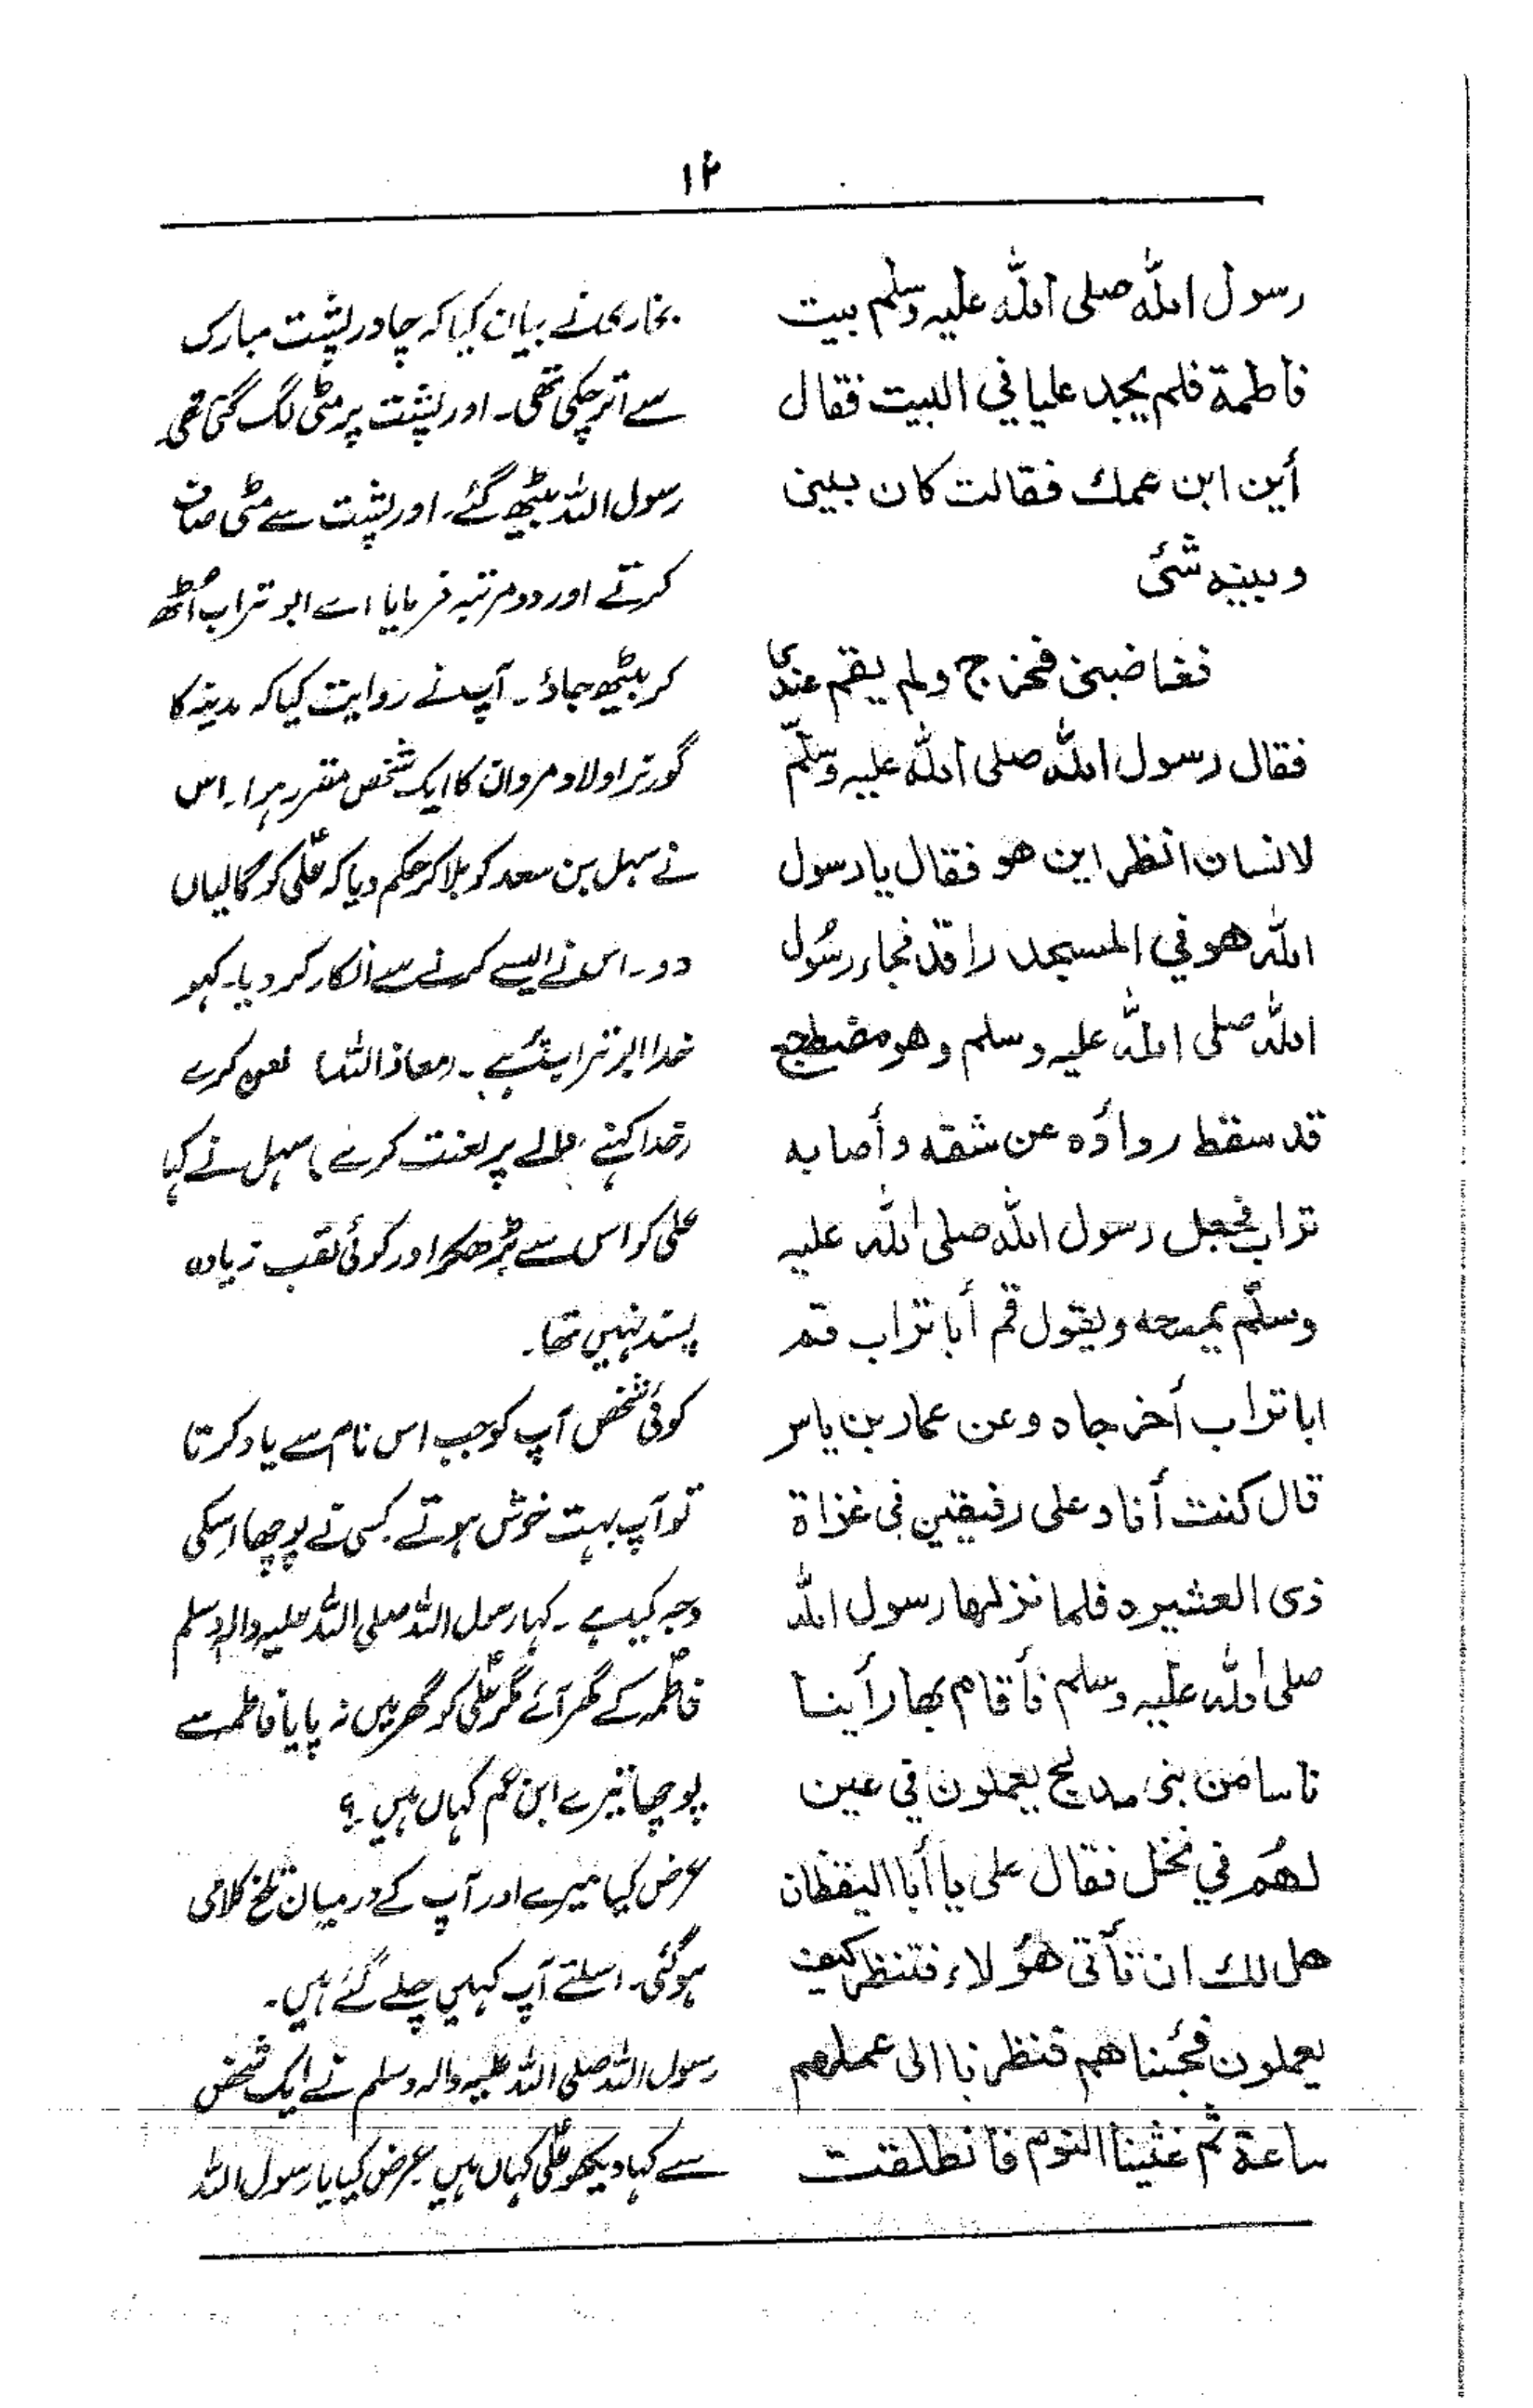 ۱۲
رسول الله صلى الله عليه وسلم بيت
فاطمة فلم يجد عليا في البيت فقال
أين ابن عمك فقالت كان بيني
وبينه شئ
فغاضبنى فخرج ولم يقم عندى
فقال رسول الله صلى الله عليه وسلّم
لانسان انظر اين هو فقال يا رسول
الله هو في المسجد راقد فجاء رسُول
الله صلى الله عليه وسلم وهو مضطجع
قد سقط رداؤه عن شقه وأصابه
تراب فجعل رسول الله صلى الله عليه
وسلّم يمسحه ويقول قم أبا تراب قم
ابا تراب أخرجاه وعن عمار بن ياسر
قال كنت أنا وعلى رفيقين فى غزاة
ذى العشيره فلما نزلها رسول الله
صلى الله عليه وسلم فأقام بها رأينا
ناسا من بنى مدلج يعملون في عين
لهُم في نخل فقال على يا أبا اليقظان
هل لك ان تأتى هؤلاء فتنظر كيف
يعملون فجئناهم فنظرنا الى عملهم
ساعة ثم غشينا النوم فانطلقت
بخاری نے بیان کیا کہ چادر پشت مبارک
سے اتر چکی تھی۔ اور پشت پر مٹی لگ گئی تھی۔
رسول اللہ بیٹھ گئے۔ اور پشت سے مٹی صاف
کرتے اور دو مرتبہ فرمایا اے ابو تراب اُٹھ
کر بیٹھ جاؤ۔ آپ نے روایت کیا کہ مدینہ کا
گورنر اولاد مروان کا ایک شخص مقرر ہوا۔ اس
نے سہل بن سعد کو بلا کر حکم دیا کہ علیؑ کو گالیاں
دو۔ اس نے ایسے کرنے سے انکار کر دیا۔ کہو
خدا ابو تراب پہ۔ (معاذ اللہ) لعن کرے
(خدا کہنے والے پر لعنت کرے) سہل نے کہا
علی کو اس سے بڑھکر اور کوئی لقب زیادہ
پسند نہیں تھا۔
کوئی شخص آپ کو جب اس نام سے یاد کرتا
تو آپ بہت خوش ہوتے۔ کسی نے پوچھا اسکی
وجہ کیا ہے۔ کہا رسول اللہ صلی اللہ علیہ والہ وسلم
فاطمہؑ کے گھر آئے مگر علیؑ کو گھر میں نہ پایا فاطمہ سے
پوچھا تیرے ابن عم کہاں ہیں۔؟
عرض کیا میرے اور آپ کے درمیان تلخ کلامی
ہوگئی۔ اسلئے آپ کہیں چلے گئے ہیں۔
رسول اللہ صلی اللہ علیہ والہ وسلم نے ایک شخص
سے کہا دیکھو علیؑ کہاں ہیں عرض کی یا رسول اللہ